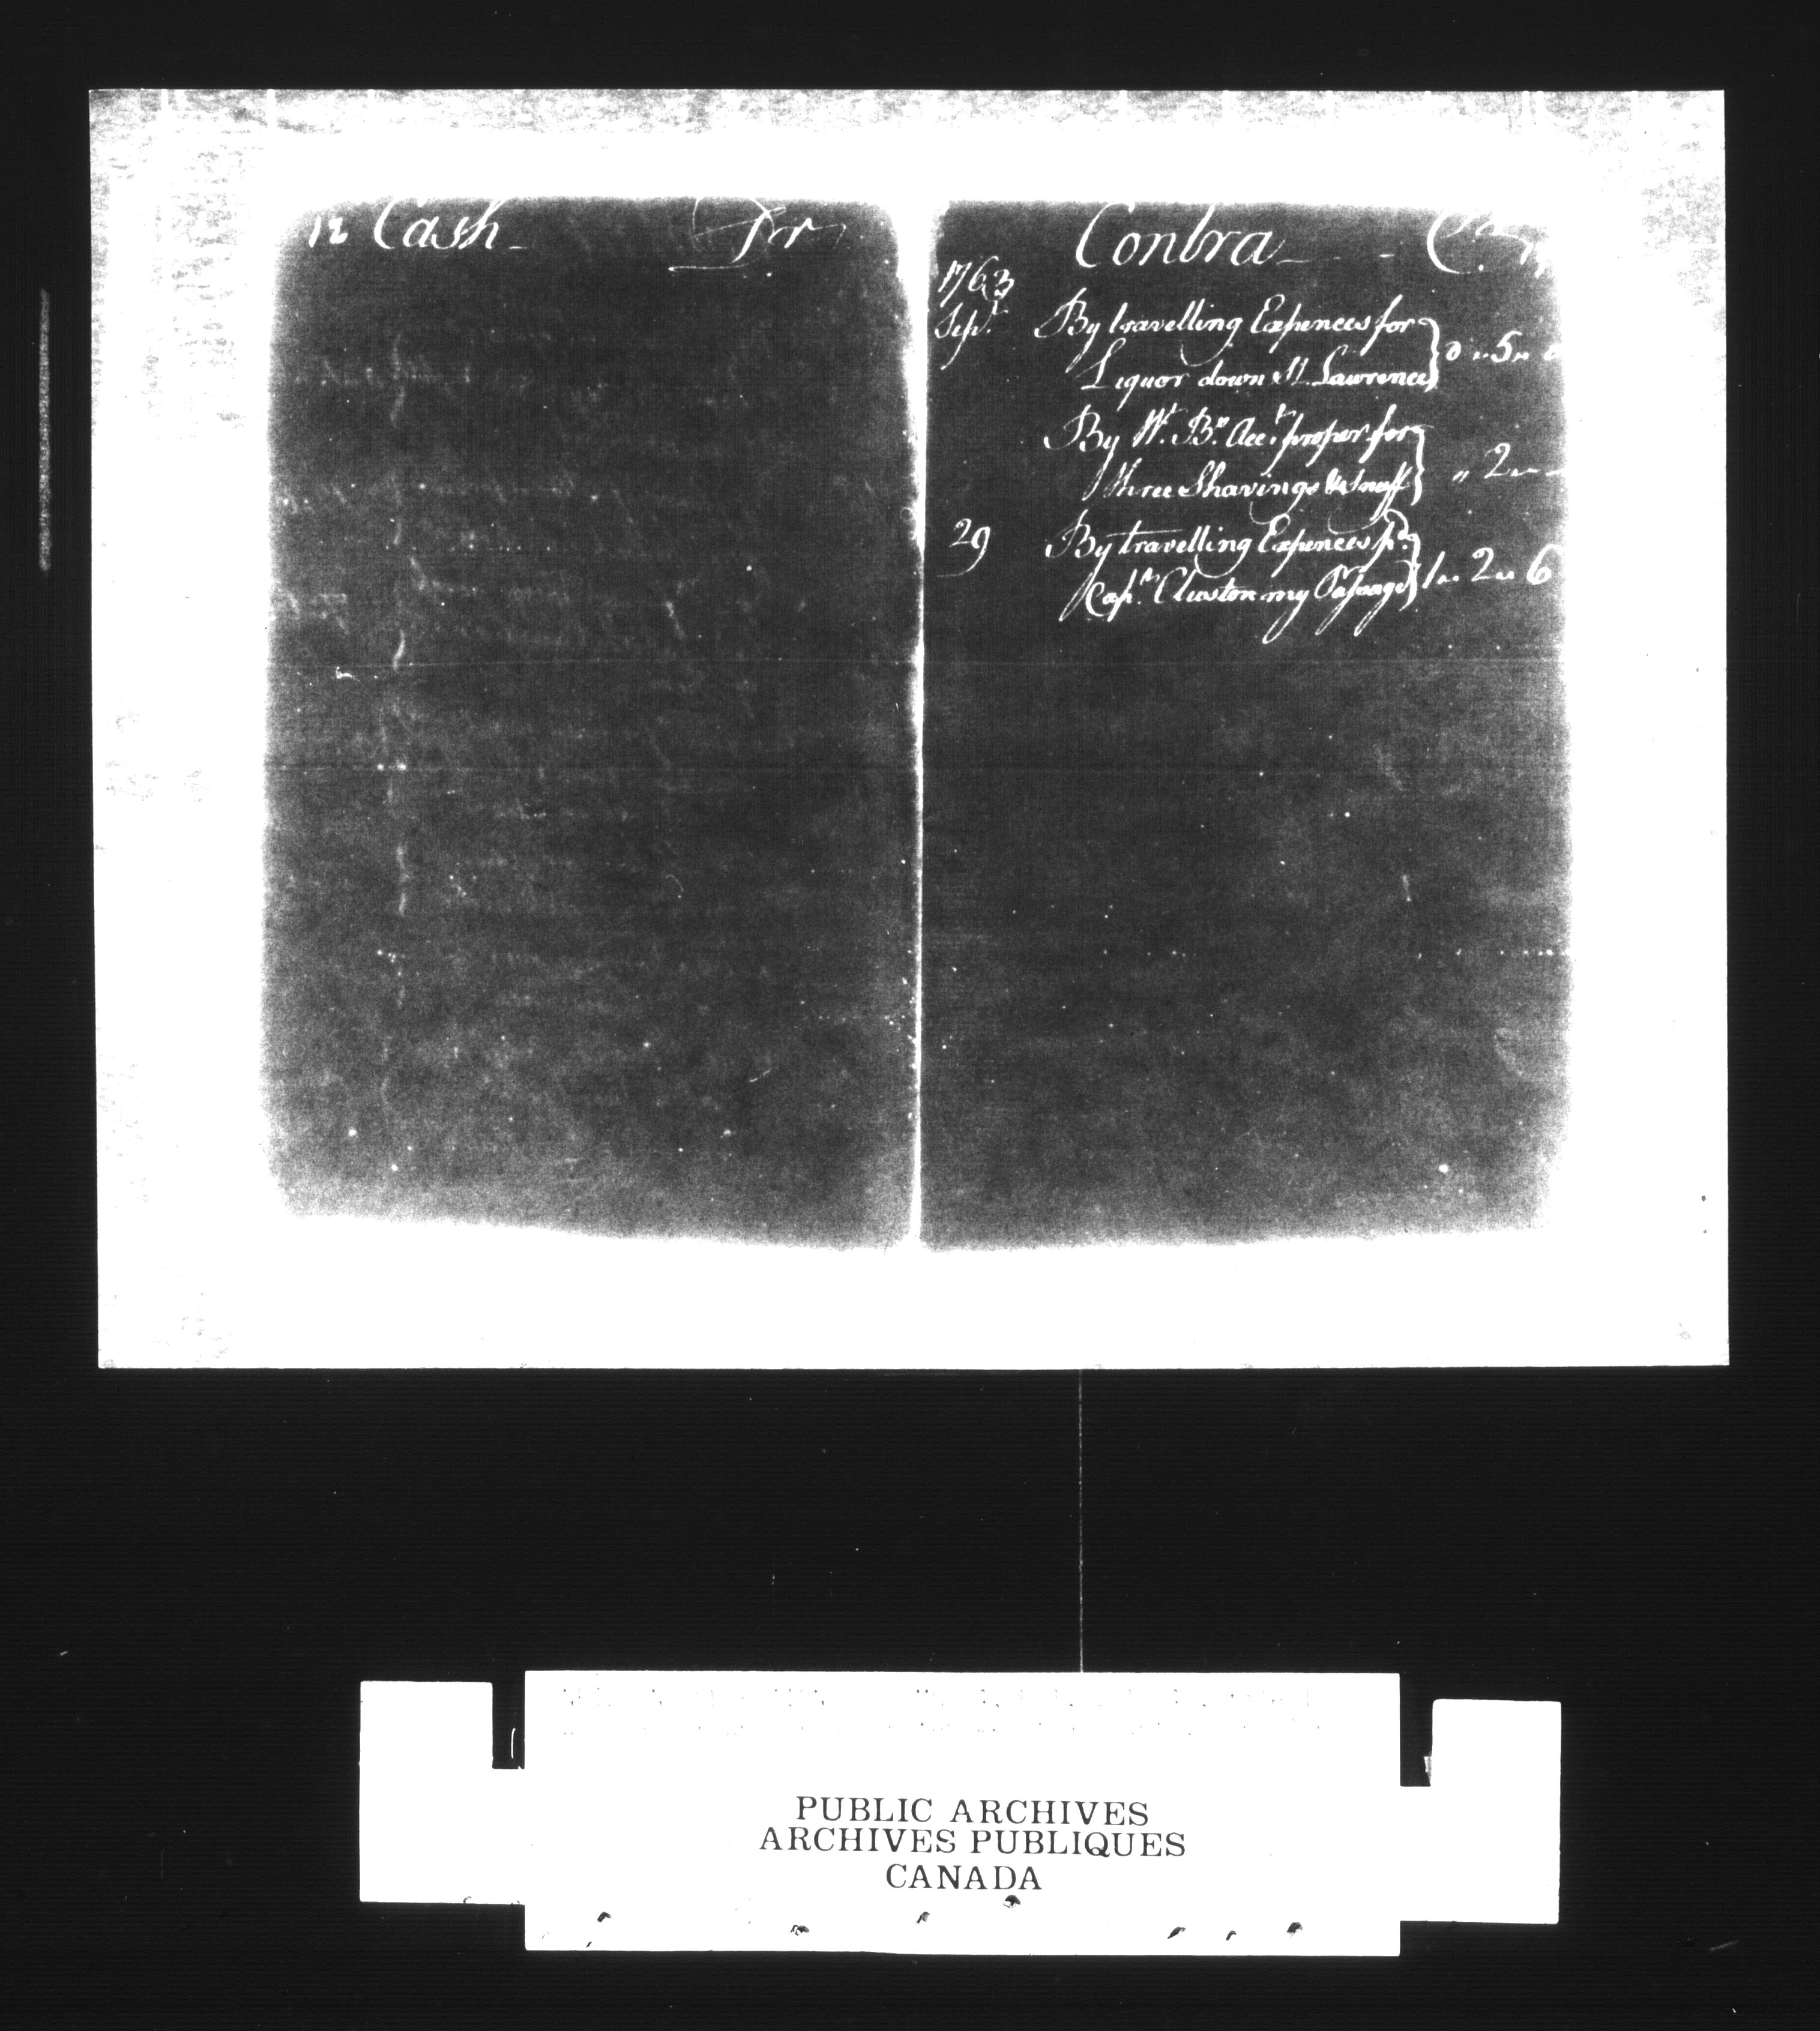 12 Cash Dr
Contra Cr
1763
Sepr. By travelling Expences for
Liquor down St. Lawrence } 0 " 5 " 0
By Wm. Bn. Acct. proper for
three Shavings & Snuff } " 2 " -
29 By travelling Expences pd.
Capn. Cluston my Passage } 1 " 2 " 6
PUBLIC ARCHIVES
ARCHIVES PUBLIQUES
CANADA